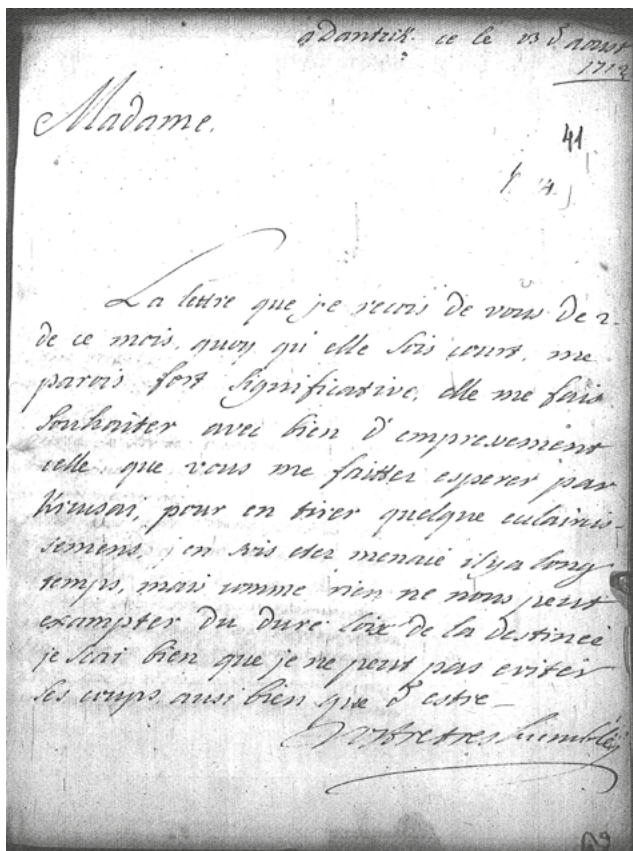 a Dantzik ce le 13 d'aoust
1712
Madame.
41
La lettre que je recois de vous de 2.
de ce mois, quoy qu'elle sois court, me
parois fort significative, elle me fais
souhaiter avec bien d'empresement
celle que vous me faittes esperer par
pour en tirer quelque eclairis-
semens, j'en svis menaié il y a long
temps, mais comme rien ne nous peut
exampter du dure loix de la destineé
je scai bien que je ne peut pas eviter
ses coups ausi bien que d'estre
Votre tres humble